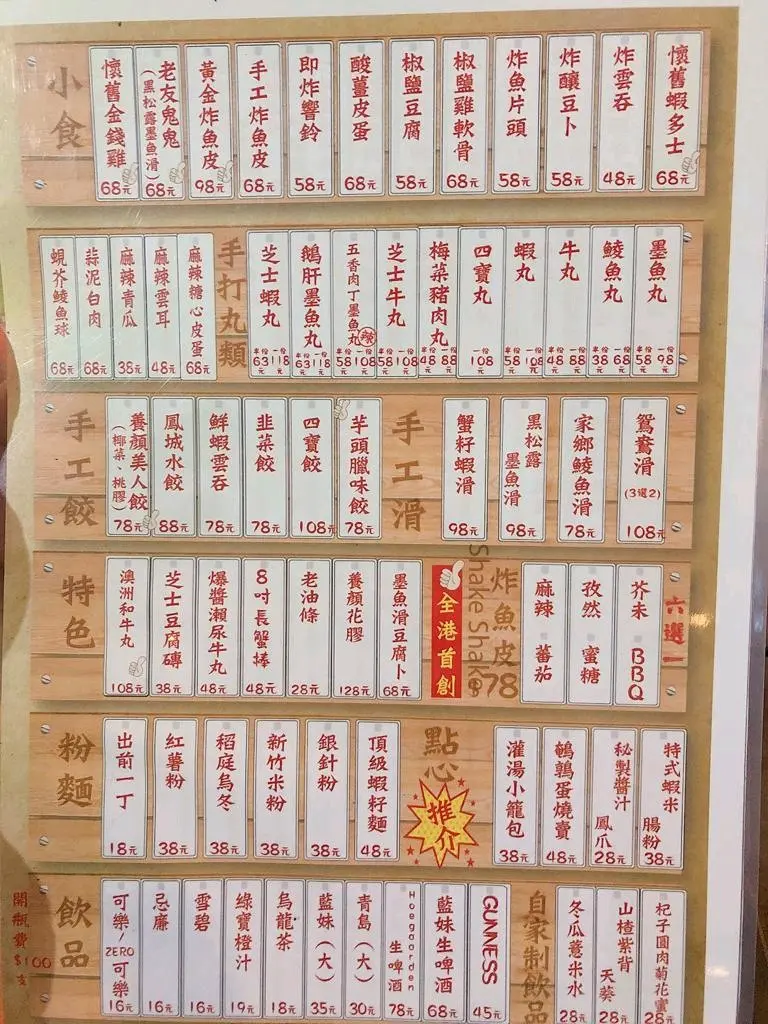 小食
懷舊金錢雞 68元
老友鬼鬼 (黑松露墨魚滑) 68元
黃金炸魚皮 98元
手工炸魚皮 68元
即炸響鈴 58元
酸薑皮蛋 68元
椒鹽豆腐 58元
椒鹽雞軟骨 68元
炸魚片頭 58元
炸釀豆卜 58元
炸雲吞 48元
懷舊蝦多士 68元
蜆芥鯪魚球 68元
蒜泥白肉 68元
麻辣青瓜 38元
麻辣雲耳 48元
麻辣糖心皮蛋 68元
手打丸類
芝士蝦丸 半份63元 一份118元
鵝肝墨魚丸 半份63元 一份118元
五香肉丁墨魚丸 辣 半份58元 一份108元
芝士牛丸 半份58元 一份108元
梅菜豬肉丸 半份48元 一份88元
四寶丸 一份108元
蝦丸 半份58元 一份108元
牛丸 半份48元 一份88元
鯪魚丸 半份38元 一份68元
墨魚丸 半份58元 一份98元
手工餃
養顏美人餃 (椰菜、桃膠) 78元
鳳城水餃 88元
鮮蝦雲吞 78元
韭菜餃 78元
四寶餃 108元
芋頭臘味餃 78元
手工滑
蟹籽蝦滑 98元
黑松露墨魚滑 98元
家鄉鯪魚滑 78元
鴛鴦滑 (3選2) 108元
特色
澳洲和牛丸 108元
芝士豆腐磚 38元
爆醬瀨尿牛丸 48元
8吋長蟹棒 48元
老油條 28元
養顏花膠 128元
墨魚滑豆腐卜 68元
全港首創
Shake Shake
炸魚皮 78
麻辣 蕃茄
孜然 蜜糖
芥末 BBQ
六選一
粉麵
出前一丁 18元
紅薯粉 38元
稻庭烏冬 38元
新竹米粉 38元
銀針粉 38元
頂級蝦籽麵 48元
點心
推介
灌湯小籠包 38元
鵪鶉蛋燒賣 48元
秘製醬汁鳳爪 28元
特式蝦米腸粉 38元
開瓶費$100支
飲品
可樂/ZERO可樂 16元
忌廉 16元
雪碧 16元
綠寶橙汁 19元
烏龍茶 18元
藍妹(大) 35元
青島(大) 30元
Hoegaarden生啤酒 78元
藍妹生啤酒 68元
GUNNESS 45元
自家制飲品
冬瓜薏米水 28元
山楂紫背天葵 28元
杞子圓肉菊花蜜 28元